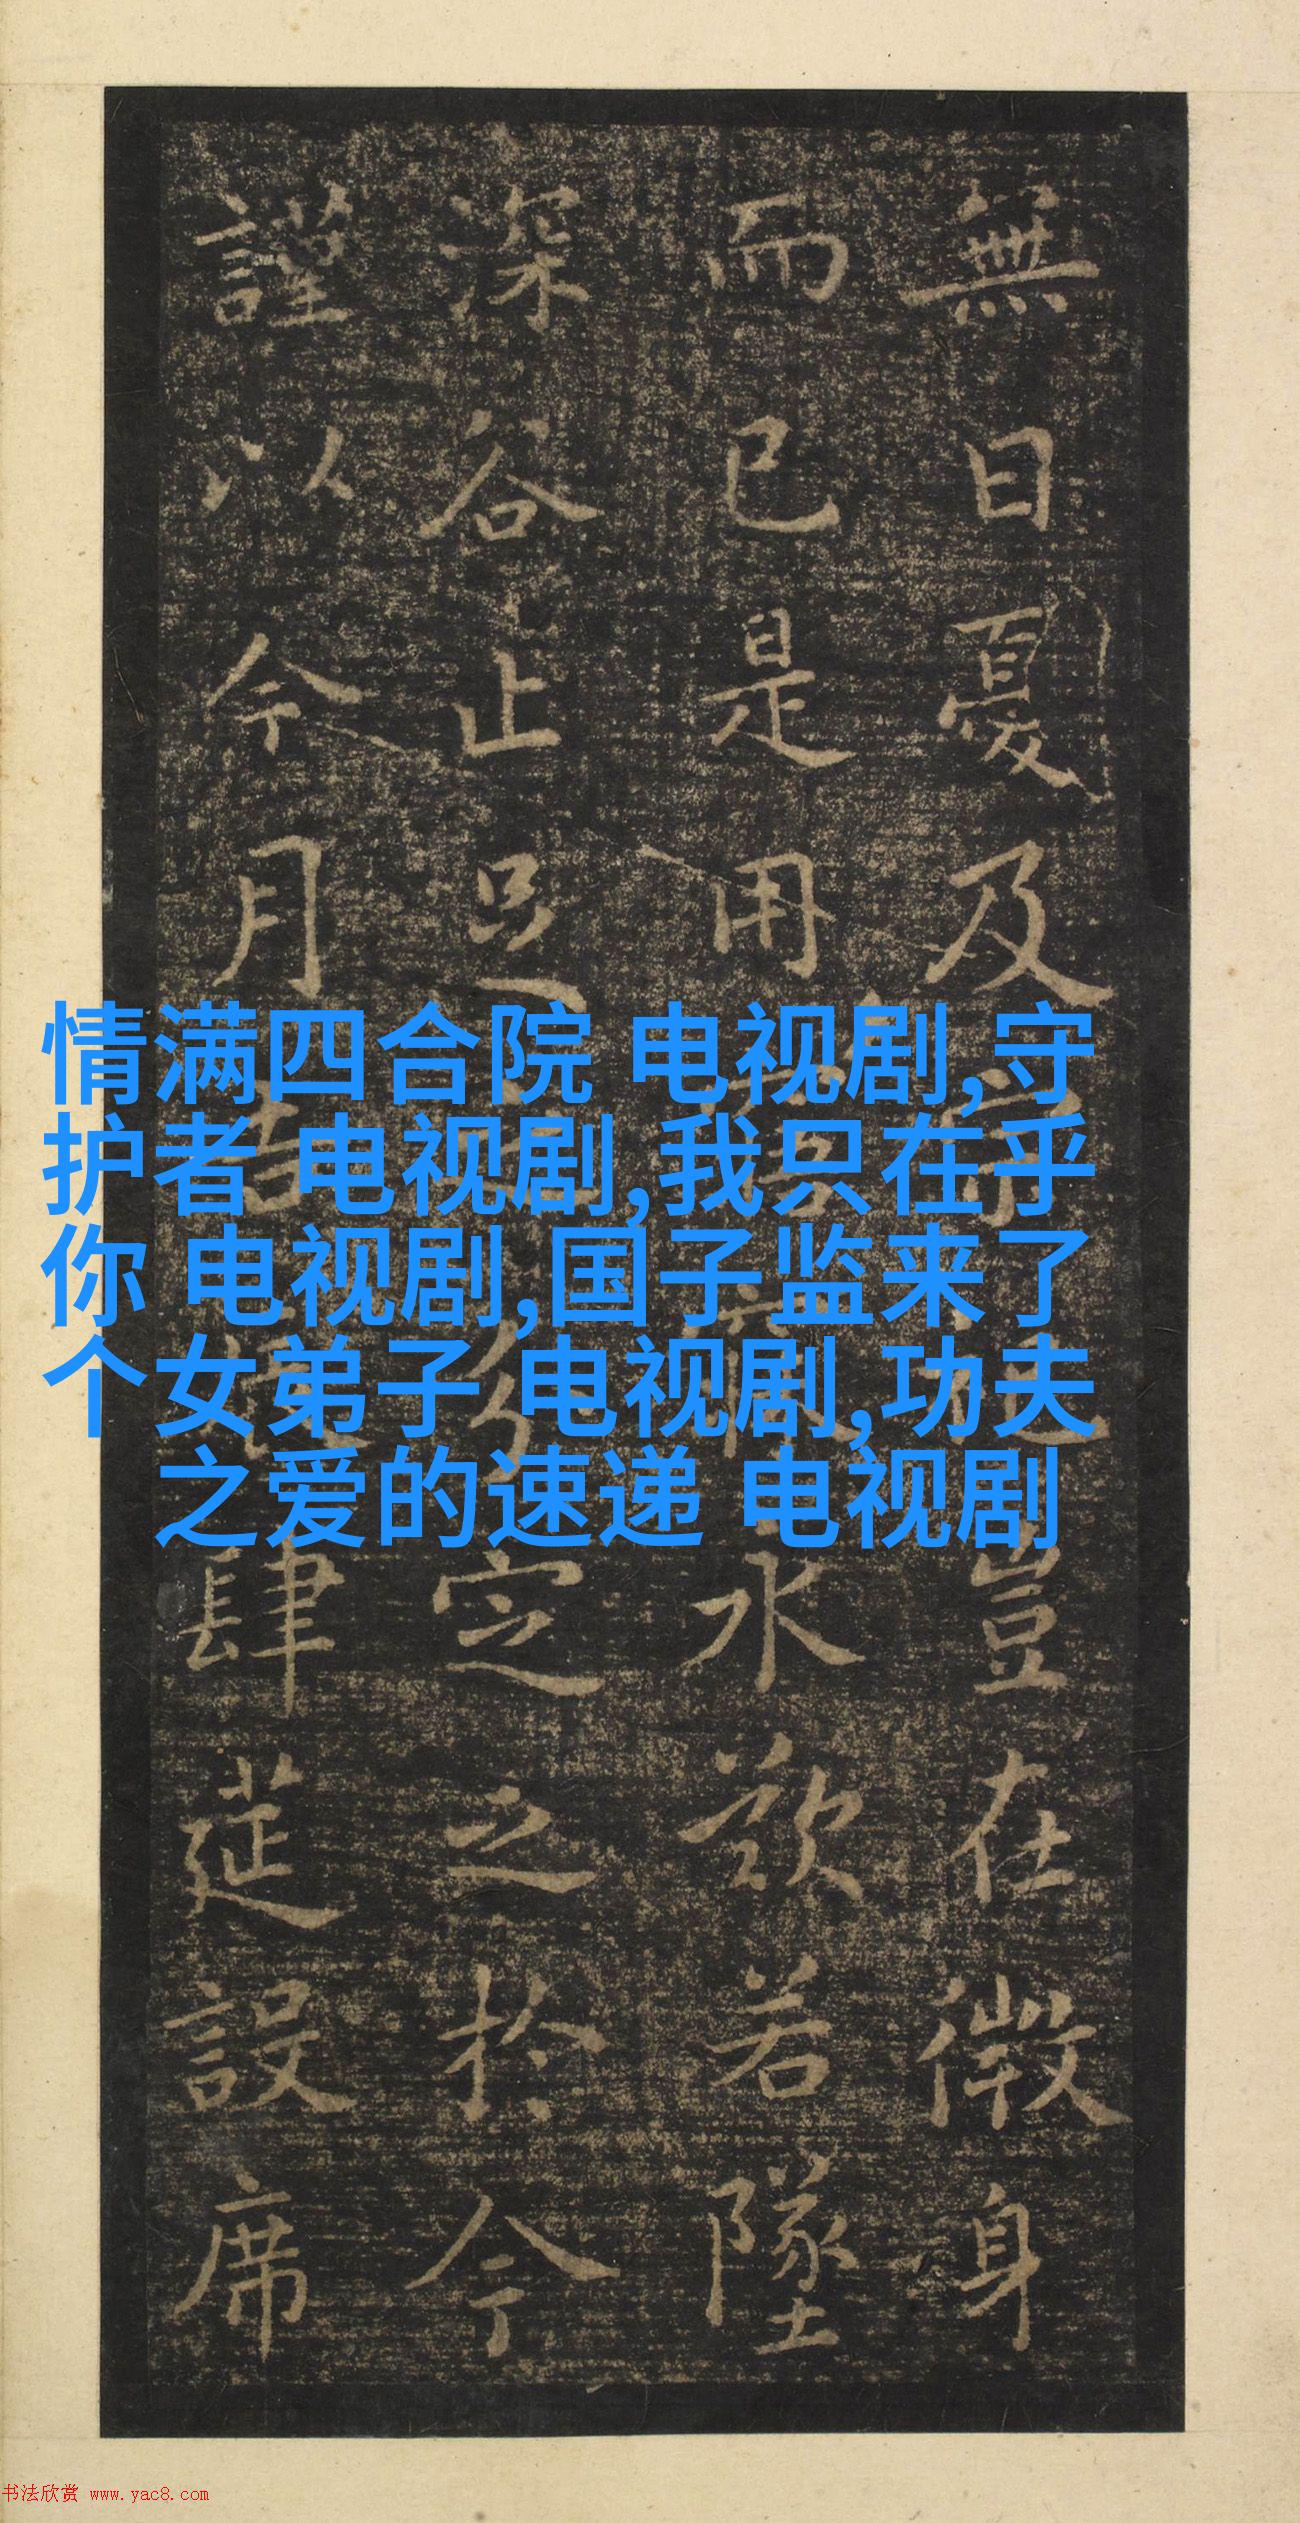 無日憂及豈在微身
而已是用永歎若墜
深谷止足分定之於今
謹以今月吉肆筵設席
情满四合院 电视剧,守
护者 电视剧,我只在乎
你 电视剧,国子监来了
个女弟子 电视剧,功夫
之爱的速递 电视剧
书法欣赏 www.yac8.com